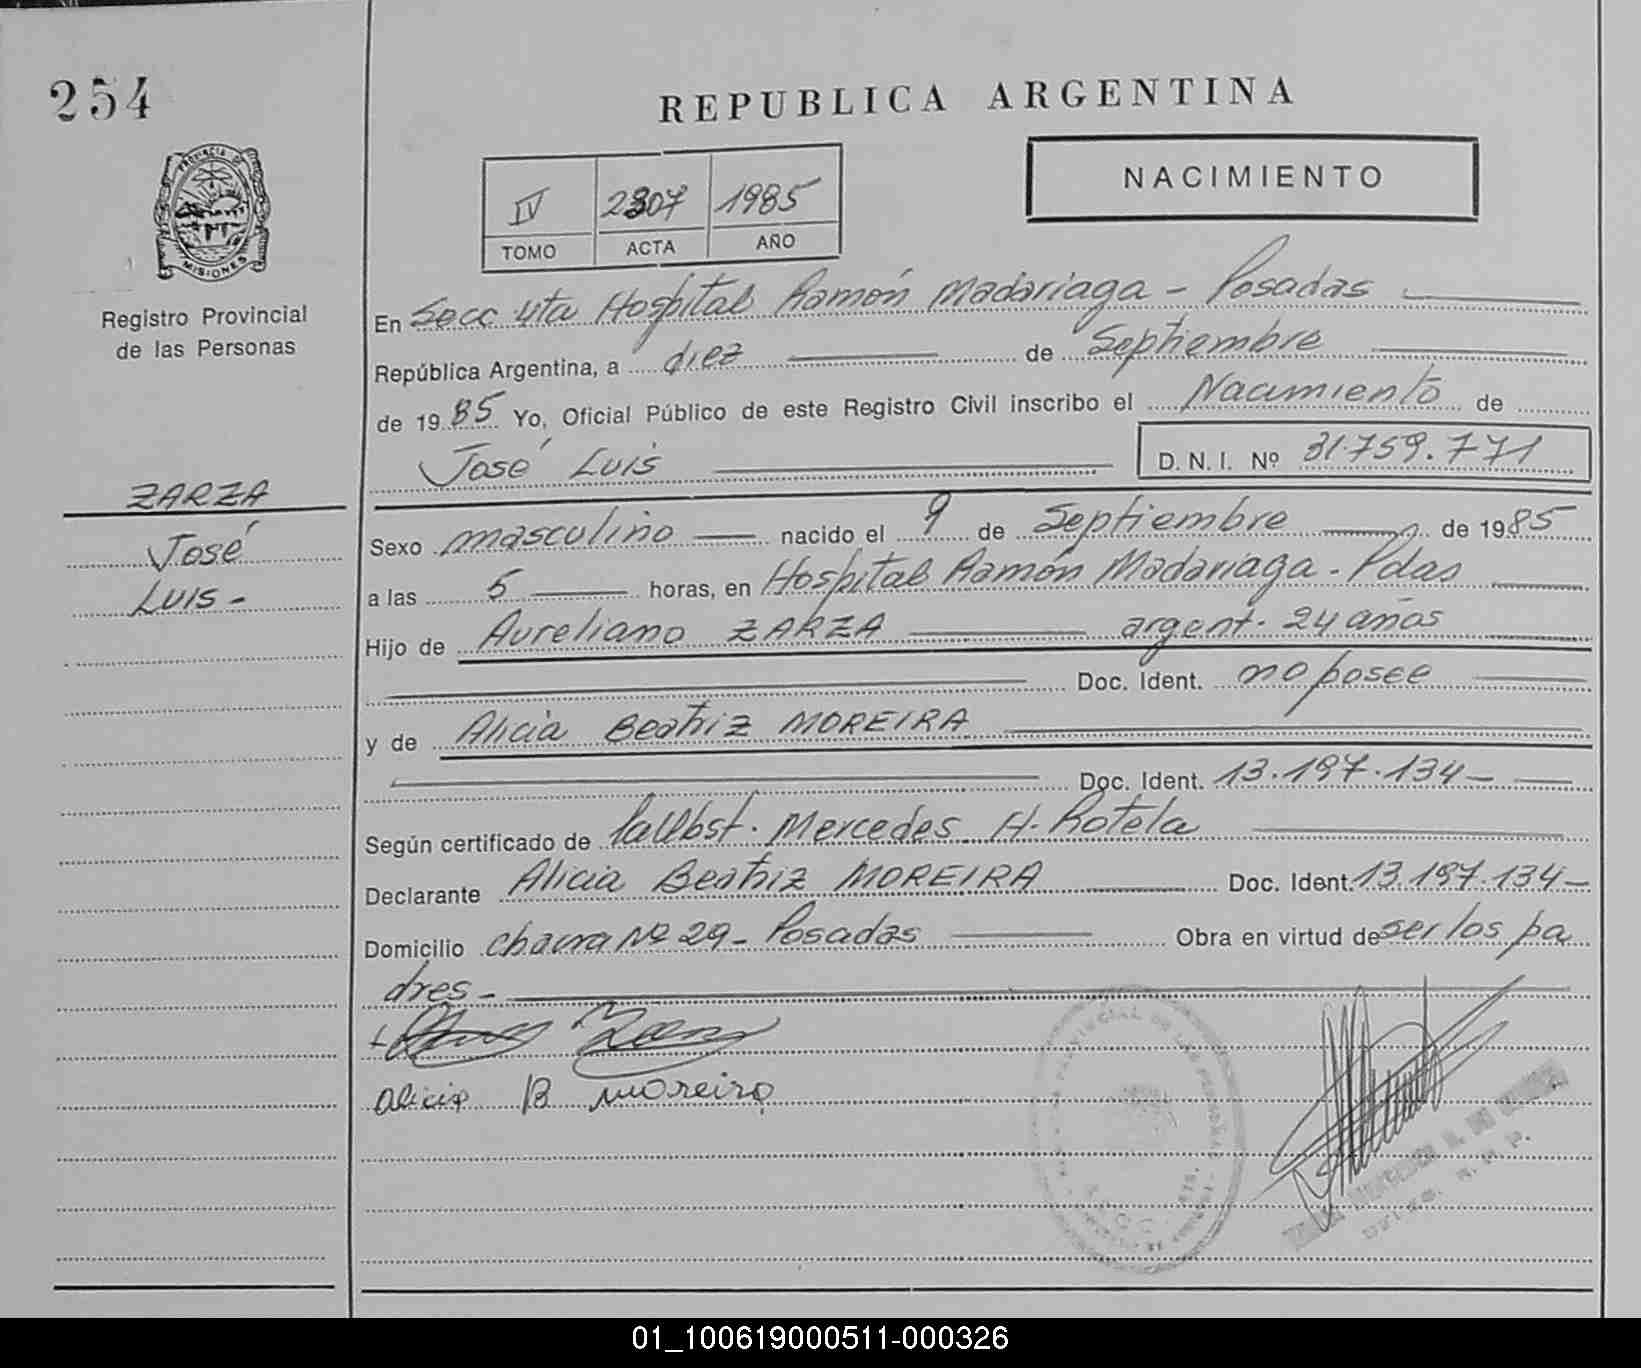 254
REPUBLICA ARGENTINA
PROVINCIA DE
MISIONES
Registro Provincial
de las Personas
IV 2307 1985
TOMO ACTA AÑO
NACIMIENTO
En Secc 4ta Hospital Ramón Madariaga - Posadas
República Argentina, a diez de Septiembre
de 1985 Yo, Oficial Público de este Registro Civil inscribo el Nacimiento de
José Luis D. N. I. Nº 31.759.771
ZARZA
José
Luis -
Sexo masculino nacido el 9 de Septiembre de 1985
a las 5 horas, en Hospital Ramón Madariaga - Pdas
Hijo de Aureliano ZARZA argent. 24 años
Doc. Ident. no posee
y de Alicia Beatriz MOREIRA
Doc. Ident. 13.197.134 -
Según certificado de Obst. Mercedes H. Rotela
Declarante Alicia Beatriz MOREIRA Doc. Ident. 13.197.134 -
Domicilio chacra Nº 29 - Posadas Obra en virtud de ser los pa
dres -
Alicia B Moreira
01_100619000511-000326